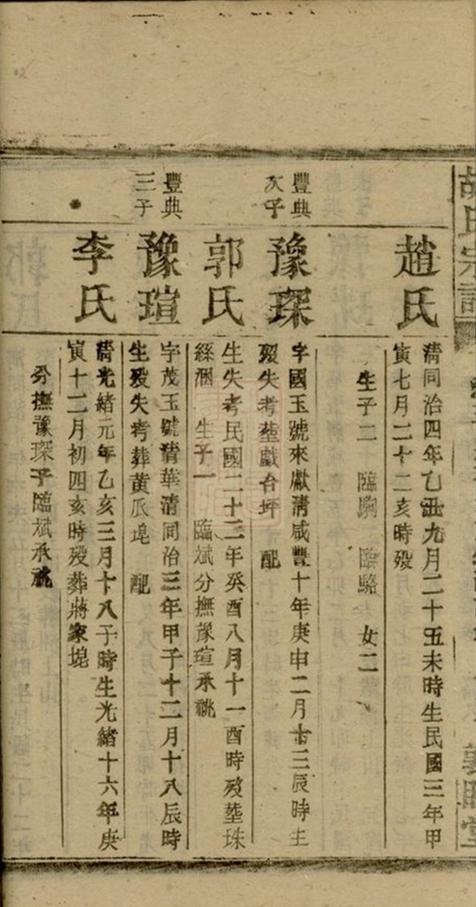 胡氏宗譜
趙氏
清同治四年乙丑九月二十五未時生民國三年甲
寅七月二十二亥時歿
生子二 臨駒 臨駱 女二
豐典
次子
豫琛
字國玉號來獻清咸豐十年庚申二月十三辰時生
歿失考塟戲台坪 配
郭氏
生失考民國二十二年癸酉八月十一酉時歿塟珠
絲洇 生子一 臨斌分撫豫瑄承祧
豐典
三子
豫瑄
字茂玉號清華清同治三年甲子十二月十八辰時
生歿失考葬黄瓜塊 配
李氏
清光緒元年乙亥三月十八子時生光緒十六年庚
寅十二月初四亥時歿葬蔣家塊
分撫豫琛子臨斌承祧